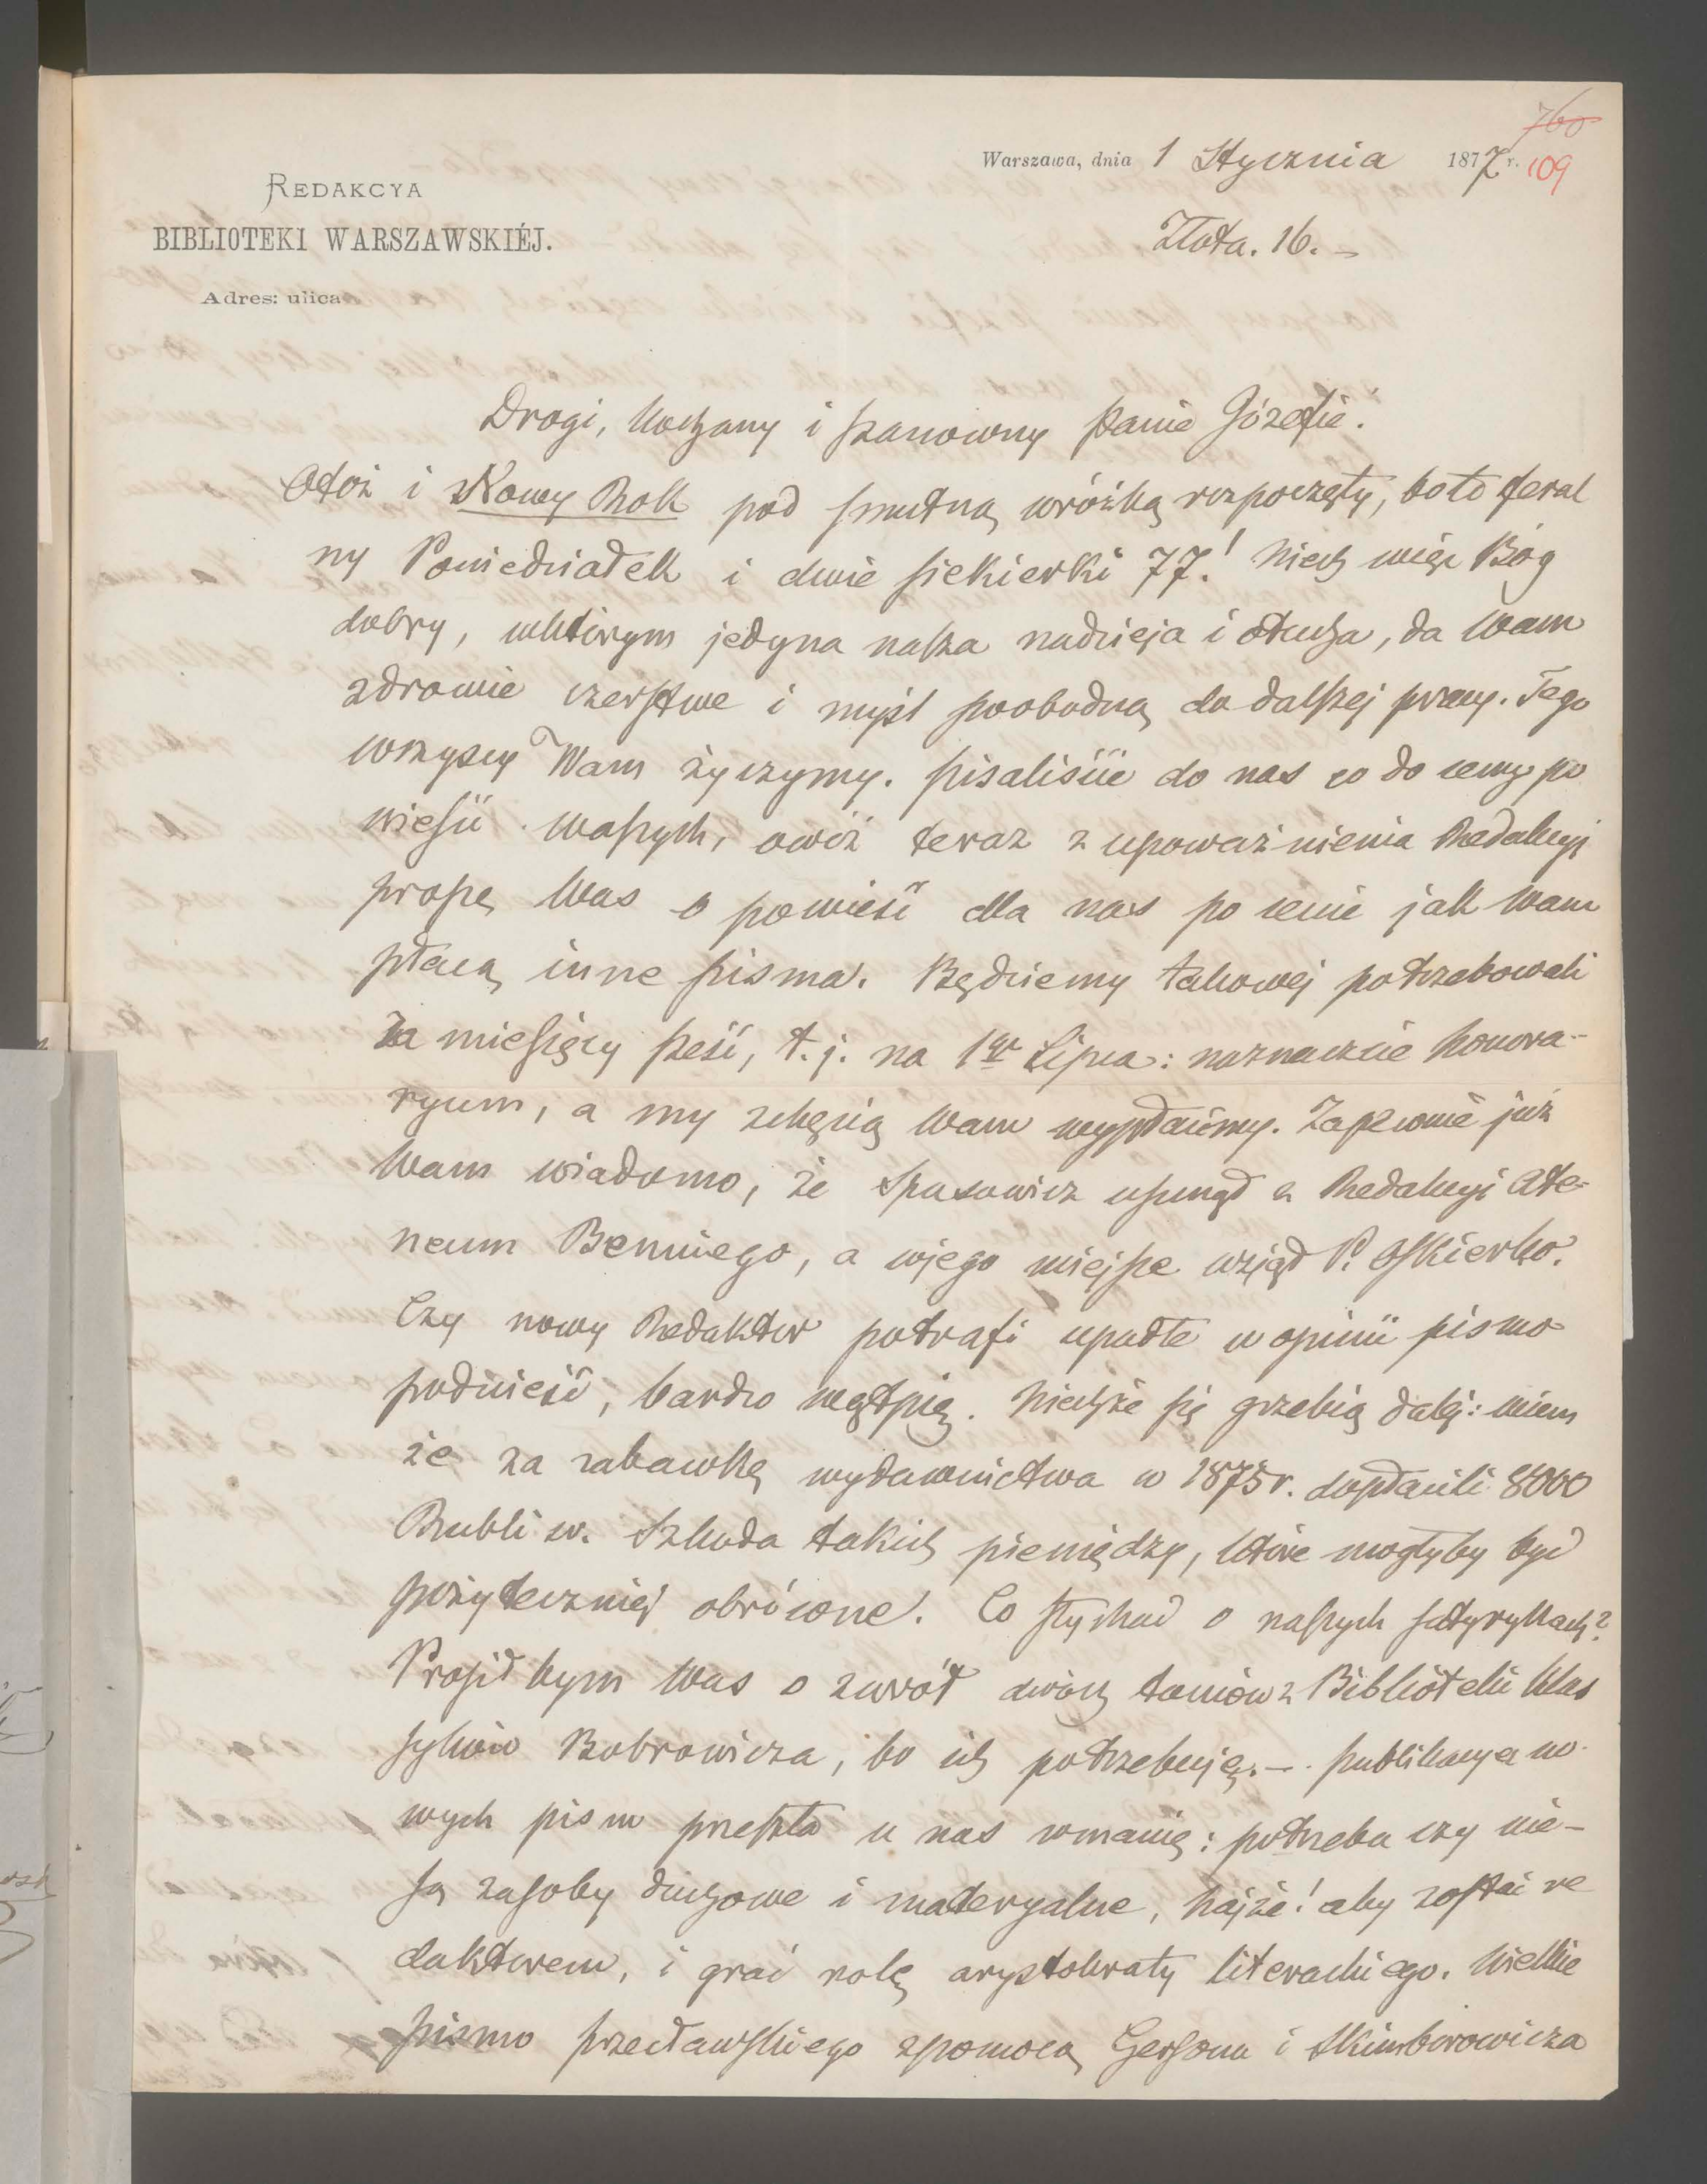 760
Warszawa, dnia 1 Stycznia 1877 r. 109
REDAKCYA
BIBLIOTEKI WARSZAWSKIÉJ.
Złota. 16. –
Adres: ulica
Drogi, kochany i szanowny Panie Józefie!
Otóż i Nowy Rok pod smutną wróżbą rozpoczęty, bo to feral
ny Poniedziałek i dwie siekierki 77! Niech więc Bóg
dobry, w którym jedyna nasza nadzieja i otucha, da Wam
zdrowie czerstwe i myśl swobodną do dalszej pracy. Tego
wszyscy Wam życzymy. Pisaliście do nas co do ceny po
wieści waszych, owóż teraz z upoważnienia Redakcyi
proszę Was o powieść dla nas po cenie jak Wam
płacą inne pisma. Będziemy takowej potrzebowali
za miesięcy sześć, t. j. na 1go Lipca: naznaczcie honora-
ryum, a my z chęcią Wam wypłacimy. Zapewne już
Wam wiadomo, że Spasowicz usunął z Redakcyi Ate-
neum Benniego, a w jego miejsce wziął P. Oskierko.
Czy nowy Redaktor potrafi upadłe w opinii pismo
podnieść, bardzo wątpię. Niechże się grzebią dalej: wiem
że za zabawkę wydawnictwa w 1875 r. dopłacili 8000
Rubli sr. Szkoda takich pieniędzy, które mogłyby być
pożyteczniej obrócone. Co słychać o naszych satyrykach?
Prosiłbym Was o zwrót dwóch tomów z Biblioteki Klas
syków Bobrowicza, bo ich potrzebuję. – Publikacya no-
wych pism przeszła u nas w manię: potrzeba czy nie –
są zasoby duchowe i materyalne, hajże! aby zostać re
daktorem, i grać rolę arystokraty literackiego. Wielkie
pismo Przecławskiego z pomocą Gersona i Skimborowicza